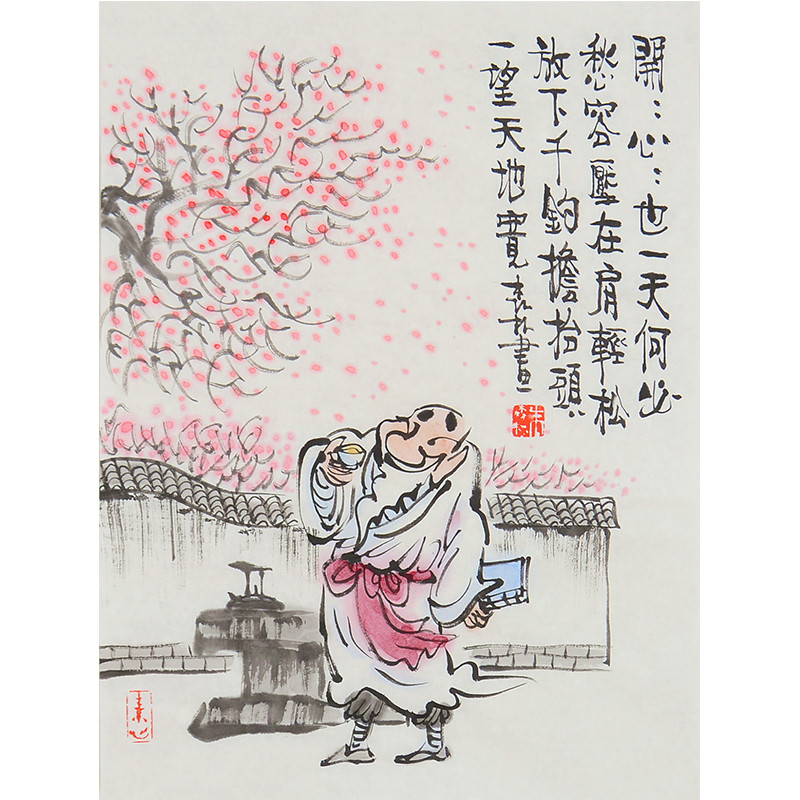 開:心:也一天何必
愁容壓在肩輕松
放下千鈞擔抬頭
一望天地寬 畫
素心